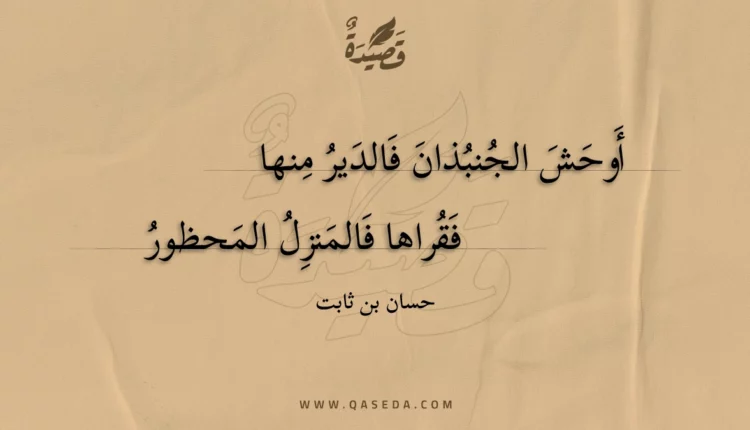 قَصِيْدَةٌ
أَوحَشَ الجُنبُذانَ فَالدَيرُ مِنها
فَقُراها فَالمَنزِلُ المَحظورُ
حسان بن ثابت
WWW.QASEDA.COM